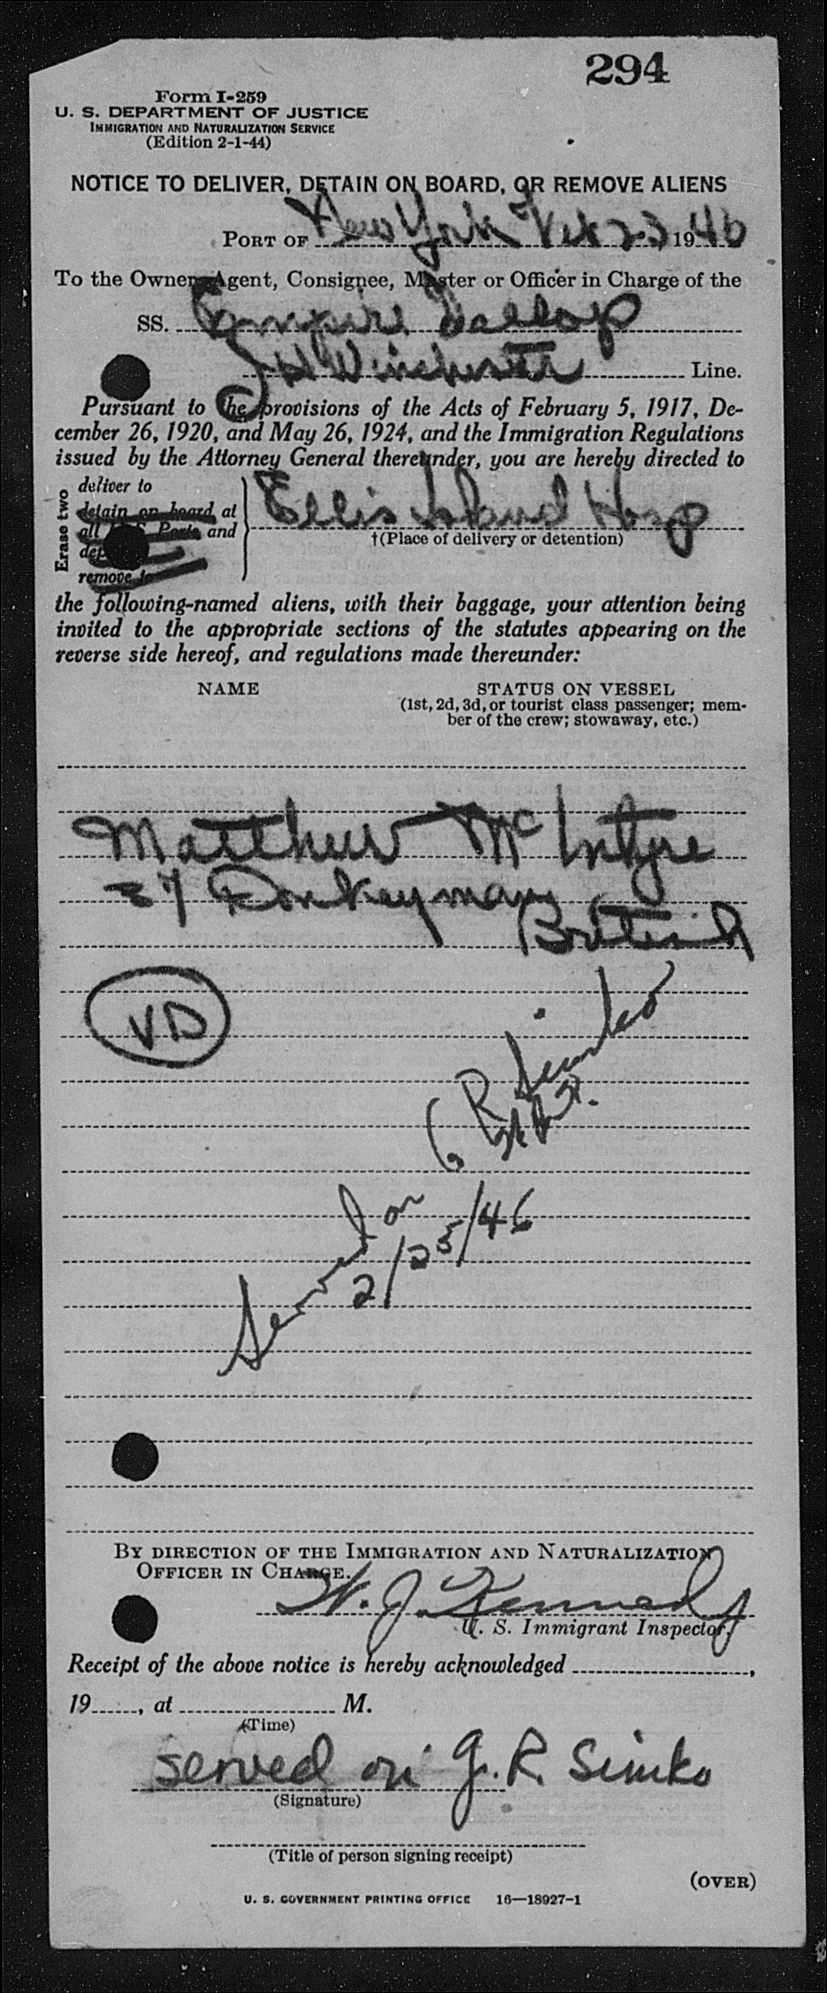 294
Form I-259
U. S. DEPARTMENT OF JUSTICE
IMMIGRATION AND NATURALIZATION SERVICE
(Edition 2-1-44)
NOTICE TO DELIVER, DETAIN ON BOARD, OR REMOVE ALIENS
PORT OF New York Feb 23 1946
To the Owner, Agent, Consignee, Master or Officer in Charge of the
SS. Empire Gallop
J H Winchester Line.
Pursuant to the provisions of the Acts of February 5, 1917, De-
cember 26, 1920, and May 26, 1924, and the Immigration Regulations
issued by the Attorney General thereunder, you are hereby directed to
Erase two
deliver to
detain on board at
all U.S. Ports and
remove to
Ellis Island Hosp
†(Place of delivery or detention)
the following-named aliens, with their baggage, your attention being
invited to the appropriate sections of the statutes appearing on the
reverse side hereof, and regulations made thereunder:
NAME STATUS ON VESSEL
(1st, 2d, 3d, or tourist class passenger; mem-
ber of the crew; stowaway, etc.)
Matthew McIntyre
#7 Donkeyman
British
VD
G R Simko
Served on
2/25/46
BY DIRECTION OF THE IMMIGRATION AND NATURALIZATION
OFFICER IN CHARGE.
W. J. Kennedy
U. S. Immigrant Inspector.
Receipt of the above notice is hereby acknowledged ,
19 , at M.
(Time)
served on G. R. Simko
(Signature)
(Title of person signing receipt)
(OVER)
U. S. GOVERNMENT PRINTING OFFICE 16—18927-1